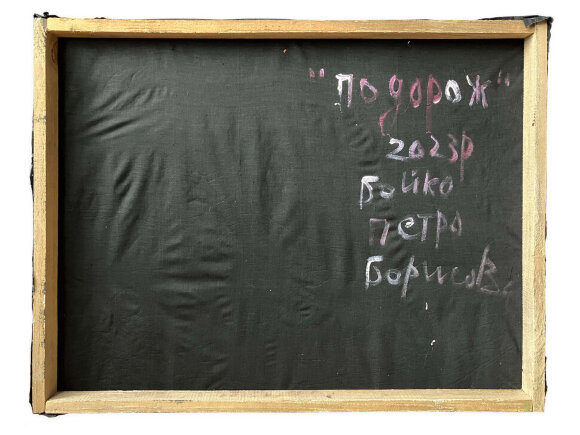 "Подорож"
2023р
Бойко
Петро
Борисов